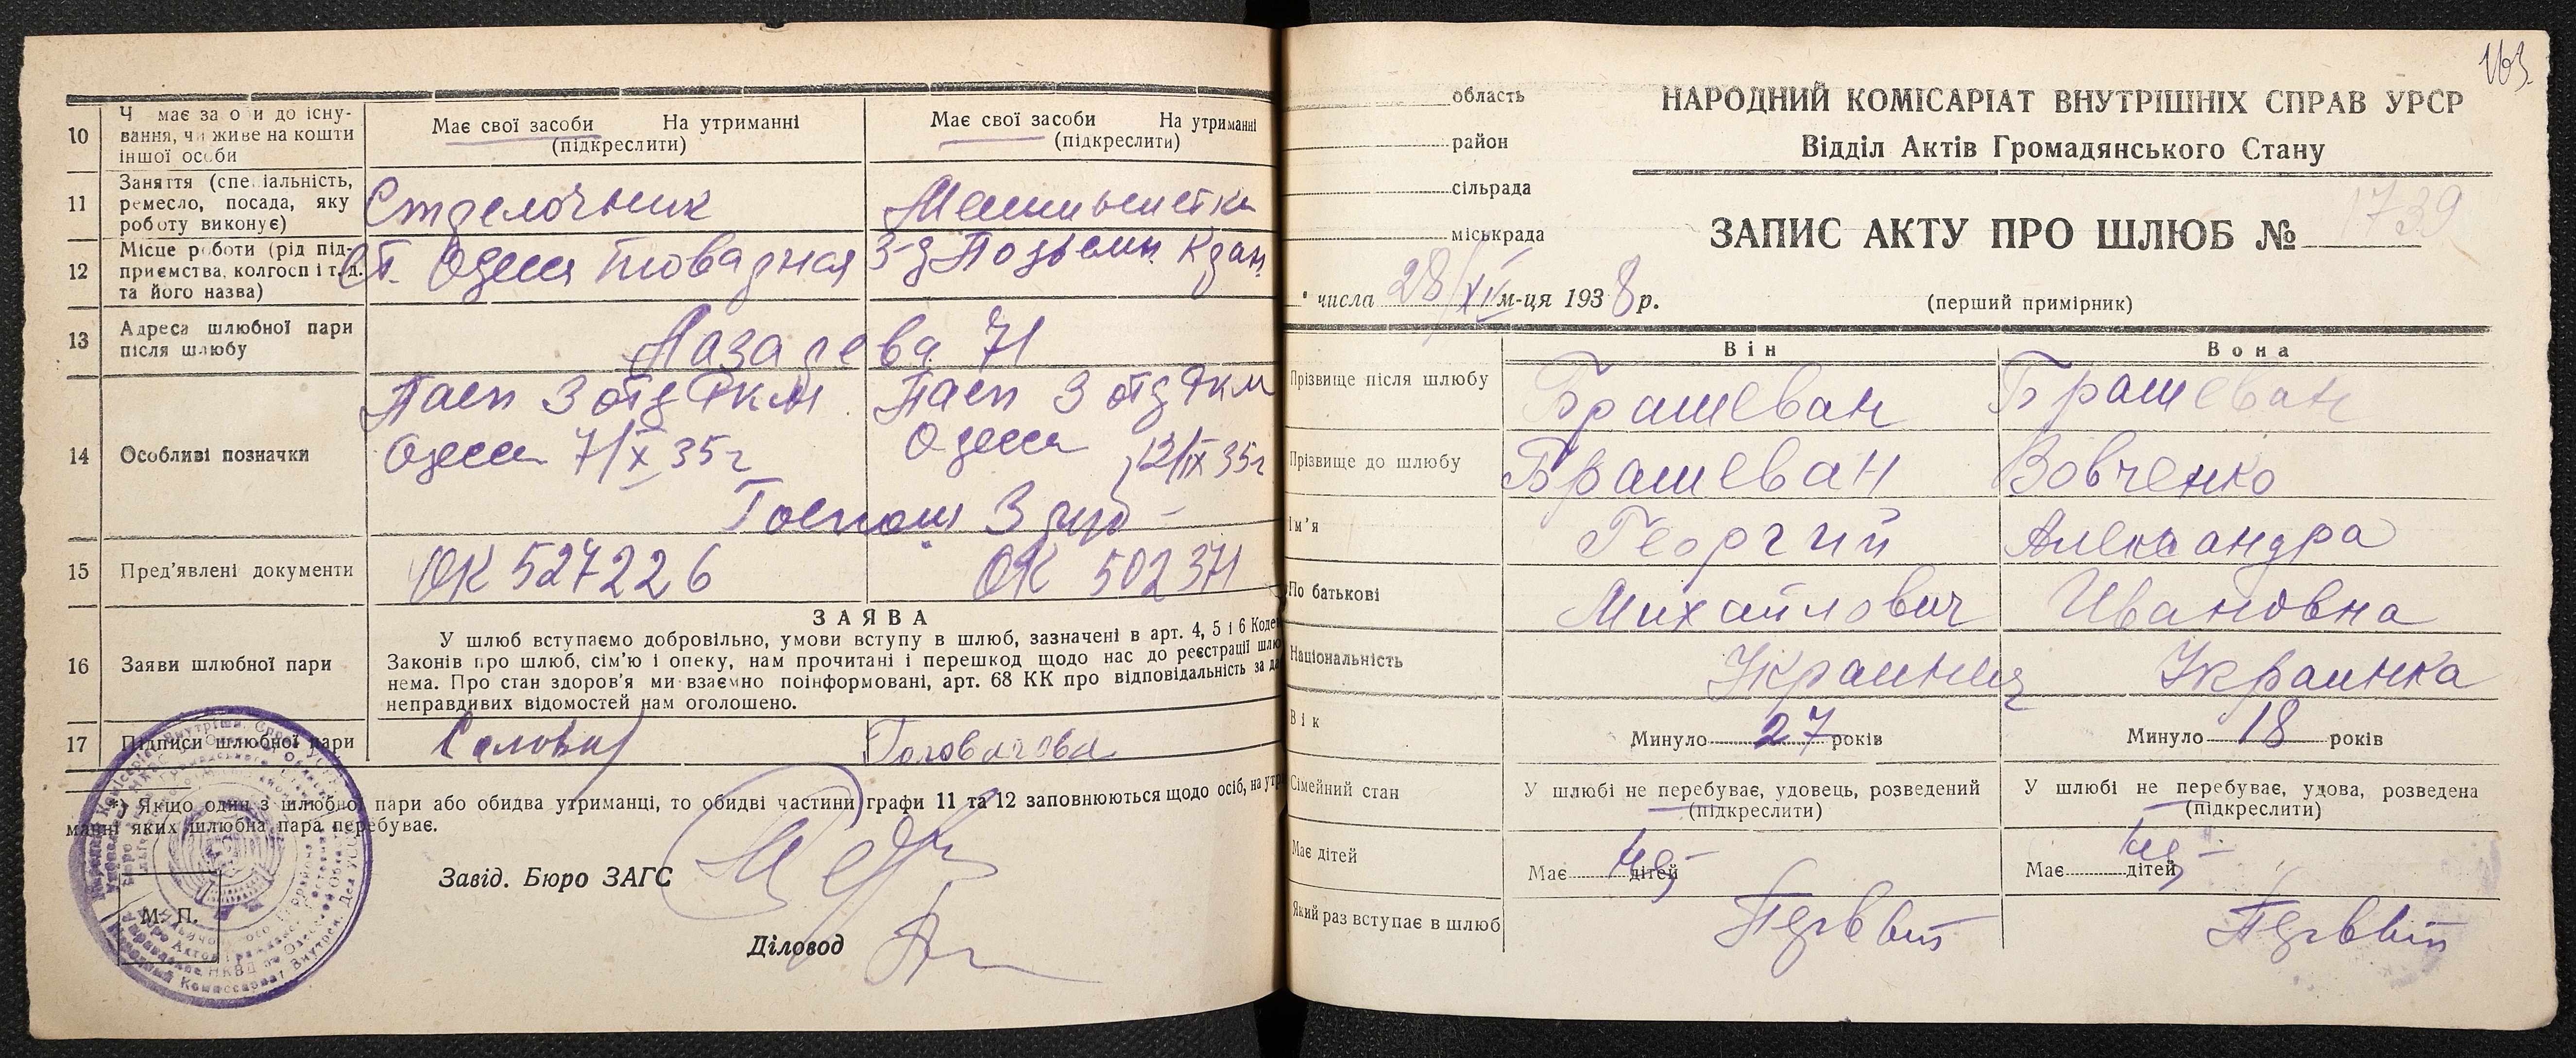 10
Ч має за о и до існу-
вання, чи живе на кошти
іншої особи
Має свої засоби На утриманні
(підкреслити)
Має свої засоби На утриманні
(підкреслити)
11
Заняття (спеціальність,
ремесло, посада, яку
роботу виконує)
Стрелочник
Машинистка
12
Місце роботи (рід під-
приємства, колгосп і т.д.
та його назва)
Ст. Одесса товарная
З-д Подъемн. Кран.
13
Адреса шлюбної пари
після шлюбу
Лазарева 71
14
Особливі позначки
Пасп 3 отд РКМ
Одесса 7/X 35 г
Пасп 3 отд РКМ
Одесса 12/IX 35 г
Госпош 3 руб -
15
Пред'явлені документи
ОК 527226
ОК 502371
16
Заяви шлюбної пари
ЗАЯВА
У шлюб вступаємо добровільно, умови вступу в шлюб, зазначені в арт. 4, 5 і 6 Коде
Законів про шлюб, сім'ю і опеку, нам прочитані і перешкод щодо нас до реєстрації шлю
нема. Про стан здоров'я ми взаємно поінформовані, арт. 68 КК про відповідальність за да
неправдивих відомостей нам оголошено.
17
Підписи шлюбної пари
*) Якщо один з шлюбної пари або обидва утриманці, то обидві частини графи 11 та 12 заповнюються щодо осіб, на утри
манні яких шлюбна пара перебуває.
Завід. Бюро ЗАГС
М. П.
Діловод
163
область
район
сільрада
міськрада
НАРОДНИЙ КОМІСАРІАТ ВНУТРІШНІХ СПРАВ УРСР
Відділ Актів Громадянського Стану
ЗАПИС АКТУ ПРО ШЛЮБ № 1739
числа 28/XII м-ця 1938 р.
(перший примірник)
Він
Вона
Прізвище після шлюбу
Брашеван
Брашеван
Прізвище до шлюбу
Брашеван
Вовченко
Ім'я
Георгий
Александра
По батькові
Михайлович
Ивановна
Національність
Украинец
Украинка
Вік
Минуло 27 років
Минуло 18 років
Сімейний стан
У шлюбі не перебуває, удовець, розведений
(підкреслити)
У шлюбі не перебуває, удова, розведена
(підкреслити)
Має дітей
Має нет дітей
Має нет дітей
Який раз вступає в шлюб
Первый
Первый